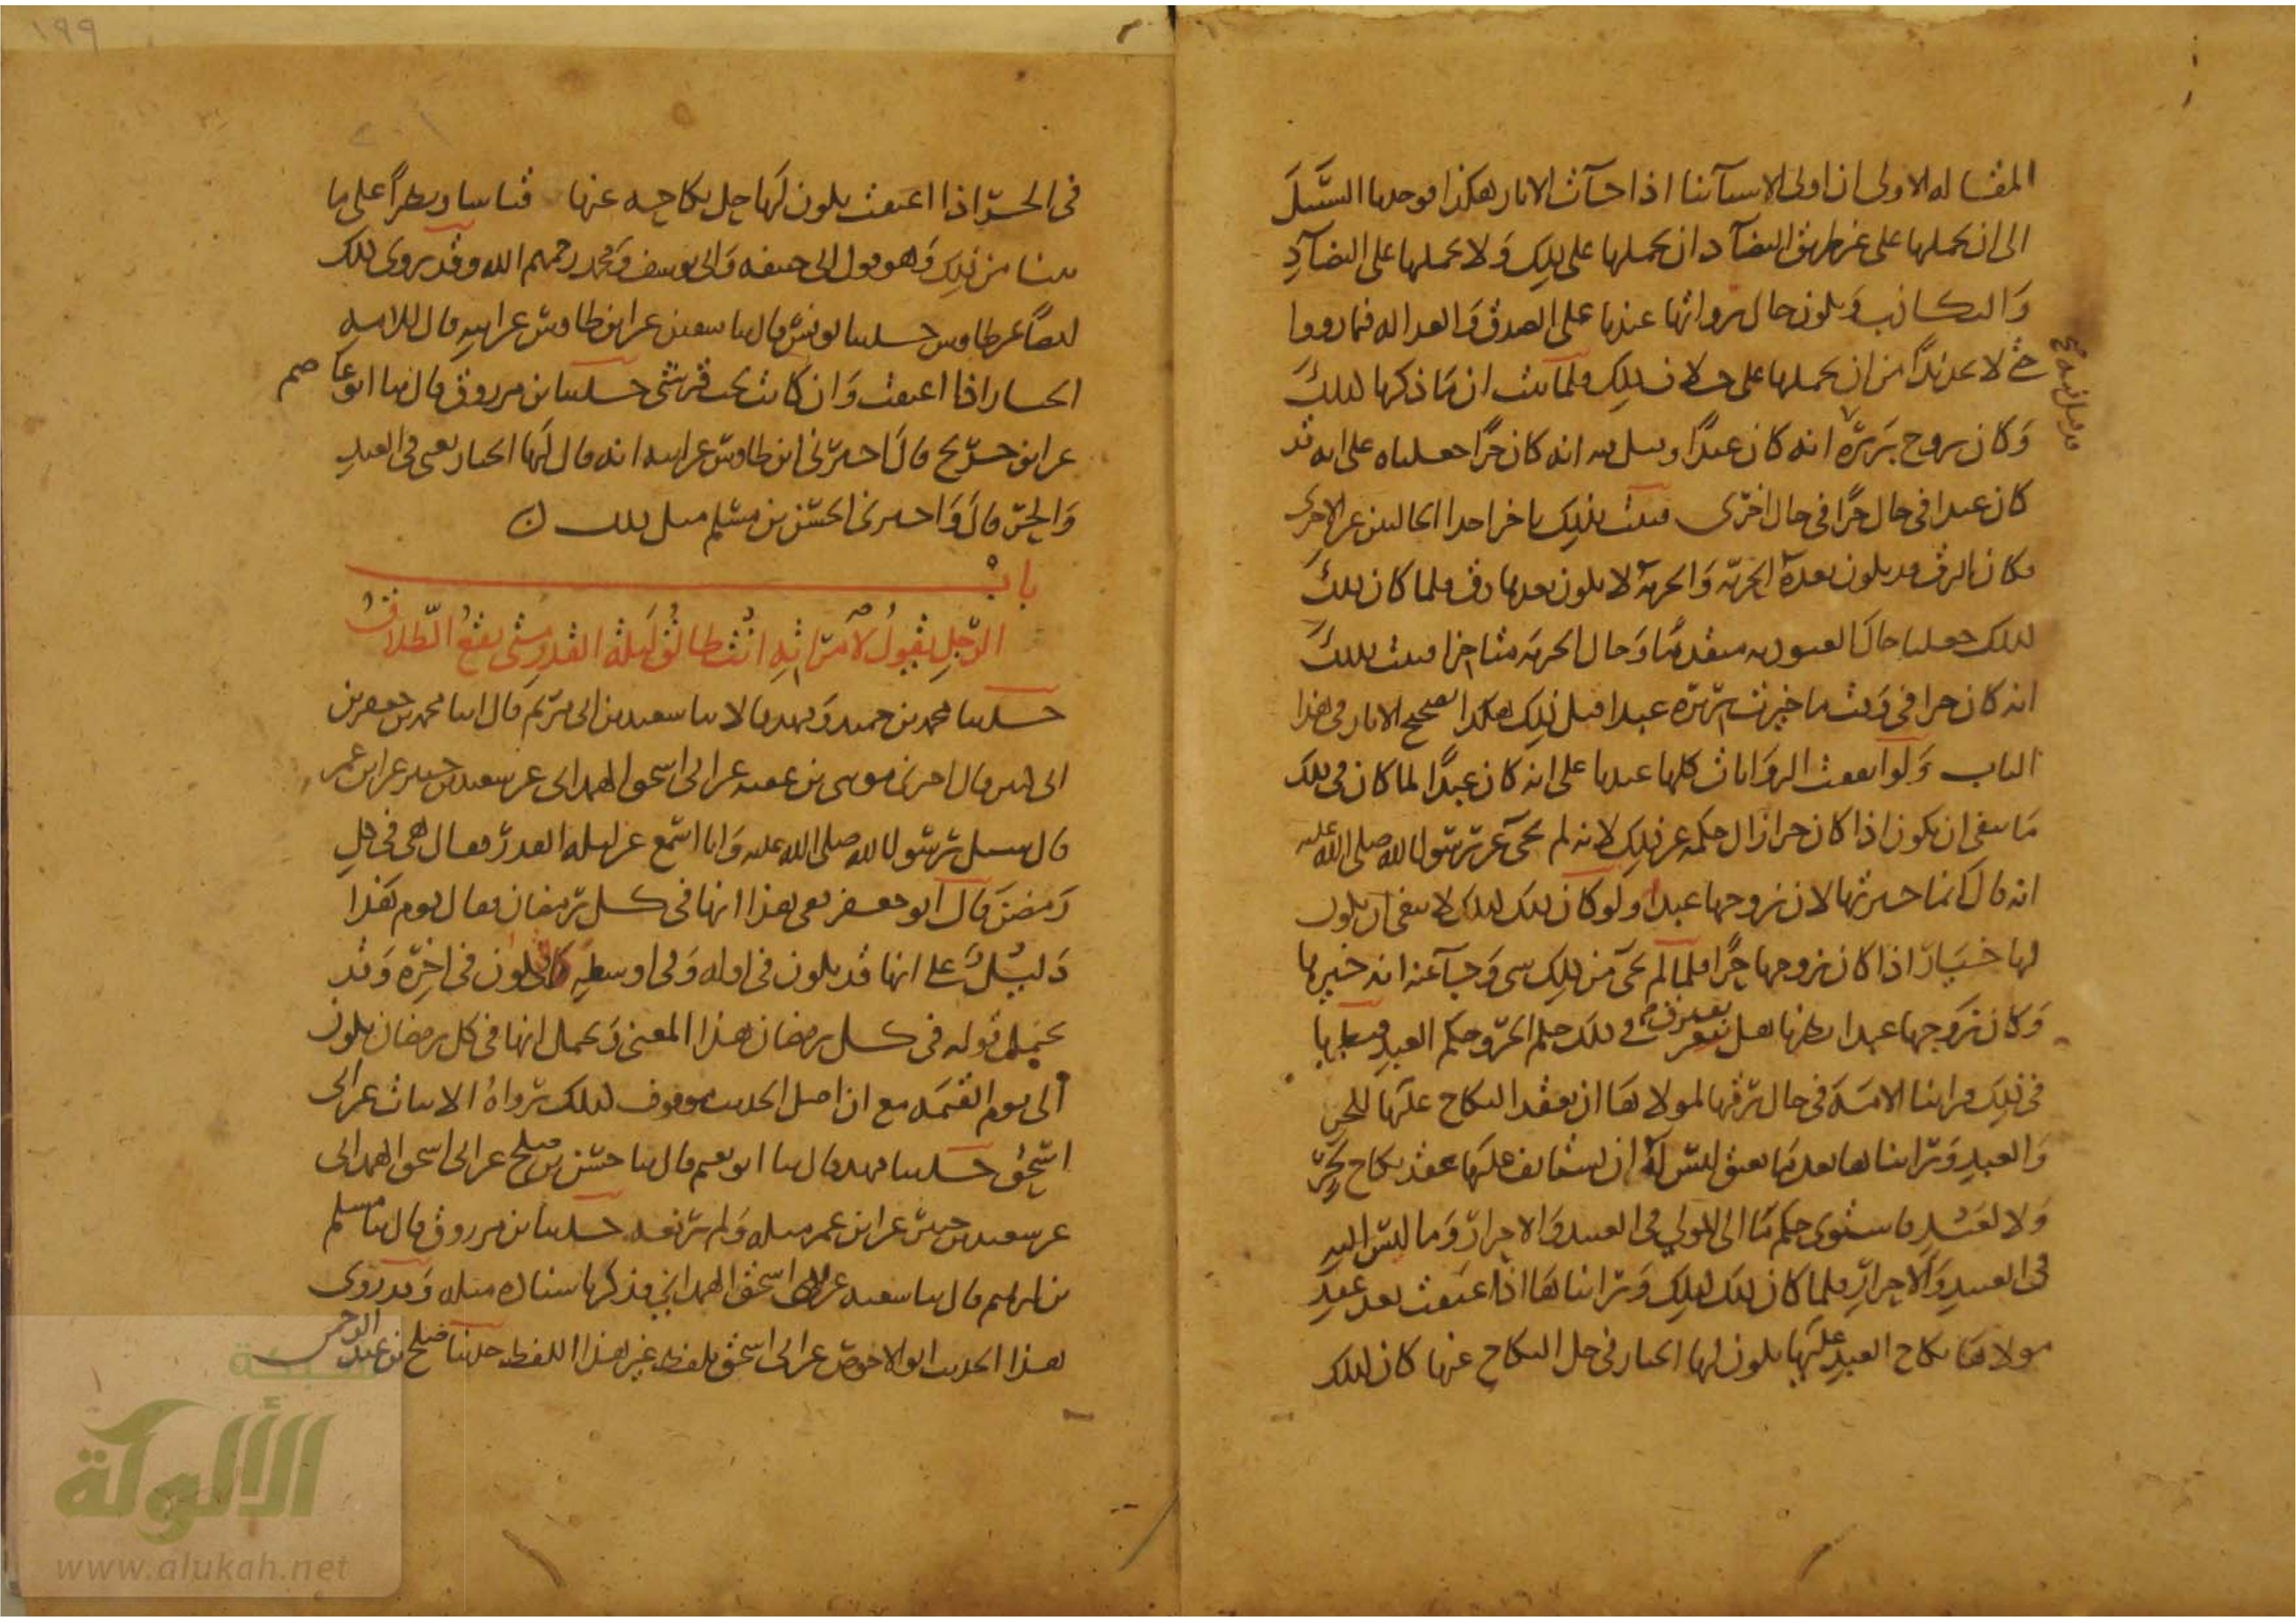 المقاله الاولى ان اولى الاشيآ بنا اذا جآت الاثار هكذا فوجدنا السبيل
الى ان نحملها على غير طريق التضآد ان نحملها على ذلك وَلا نحملها على التضآدِ
وَالتكاذب وَيكون حال رواتها عندنا على الصدق وَالعداله فيما رووا
حتى لا نجد بُدًّا من ان نحملها على خلاف ذلك فلما ثبت ان مَا ذكرنا كذلكَ
وَكان زوج بَرِيرَة قد قيل فيه انه كان عبدًا وقيل فيه انه كان حُرًّا جعلناه على انه قد
كان عبدا فى حال حُرًّا فى حال اخرى فثبت بذلك تاخر احدا الحالتين عن الاخرى
فكان الرق قد يكون بعده الحُرّيّه وَالحريه لا يكون بعدها رق فلما كان ذلكَ
كذلك جعلنا حال العبوديه متقدمًا وَحال الحريه متاخرا فثبت بذلكَ
انه كان حرا فى وَقت ما خيرت بَرِيرَة عبدا قبل ذلك هكذا تصحيح الاثار فى هذا
الباب وَلو اتفقت الروَايات كلها عندنا على انه كان عبدًا لما كان فى ذلك
مَا ينفى ان يكون اذا كان حرا زال حكمه عن ذلك لانه لم يجئ عن رسول الله صلى الله عليه
انه قال انما خيرتها لان زوجها عبد ولو كان ذلك كذلك لانتفى ان يكون
لها خيَار اذا كان زوجها حُرًّا فلما لم يجئ من ذلك شى وَجآ عنه انه خيرها
وَكان زَوجها عبدا نظرنا هل يفترق فى ذلك حكم الحر وحكم العبد فنظرنا
فى ذلك فراينا الامَه فى حال رقها لمولاهَا ان يعقد النكاح عليها للحر
وَالعبد وَراينا ها بعد مَا تعتق ليس له ان يستانف عليهَا عقد نكاح لحُرّ
وَلا لعَبْد فاستوى حكم مَا الى المولى فى العبيد وَالاحرار وَما ليس اليه
فى العبيد وَالاحرار فلما كان ذلك كذلك وَراينا هَا اذا اعتقت بعد عقد
مولاهَا نكاح العبد عليها يكون لها الخيار فى حل النكاح عنها كان كذلك
فى الحرّ اذا اعتقت يكون لهَا حل نكاحه عنها قياسا ونظرًا على ما
بينا من ذلك وَهو قول ابى حنيفه وَابى يوسف وَمحمد رحمهم الله وقد روى ذلك
ايضًا عن طاوس حدثنا يونس قال ثنا سفين عن ابن طاوس عن ابيه قال للامه
الخيار اذا اعتقت وَان كانت تحت قرشى حدثنا ابن مرزوق قال ثنا ابو عاصم
عن ابن جريج قال اخبرنى ابن طاوس عن ابيه انه قال لهَا الخيار يعنى فى العبد
وَالحرّ قال وَاخبرنى الحسن بن مسلم مثل ذلك
باب
الرّجلِ يقولُ لاِمْرَاتِهِ اَنْتِ طالقٌ لَيلةَ القدرِ متى يقعُ الطّلاقُ
حدثنا محمد بن حميد وَفهد قالا ثنا سعيد بن ابى مريم قال انا محمد بن جعفر بن
ابى كثير قال اخبرنى موسى بن عقبه عن ابى اسحق الهمدانى عن سعيد بن جبير عن ابن عمر
قال سئل رسول الله صلى الله عليه وَانا اسمع عن ليله القدر فقال هى فى كلِ
رَمضنَ قال ابو جعفر ففى هذا انها فى كل رمضان فقال قوم هَذا
دَليلٌ على انها قد يكون فى اوله وَفى اوسطه كما قد يكون فى اخِرِه وَقد
يحتمل قوله فى كل رمضان هذا المعنى وَيحتمل انها فى كل رمضان يكون
الى يوم القيمه مع ان اصل الحديث موقوف كذلك رواهُ الاثبات عن ابى
اسحق حدثنا فهد قال ثنا ابو نعيم قال ثنا حسن بن صلح عن ابى اسحق الهمدانى
عن سعيد بن جبير عن ابن عمر مثله وَلم يرفعه حدثنا ابن مرزوق قال ثنا مسلم
بن ابرهيم قال ثنا شعبه عن ابى اسحق الهمدانى فذكر باسناده مثله وَقد روى
هذا الحديث ابو الاحوص عن ابى اسحق بلفظ غير هذا اللفظ حدثنا صلح بن عبد الرحمن
١٩٩
الألوكة
www.alukah.net